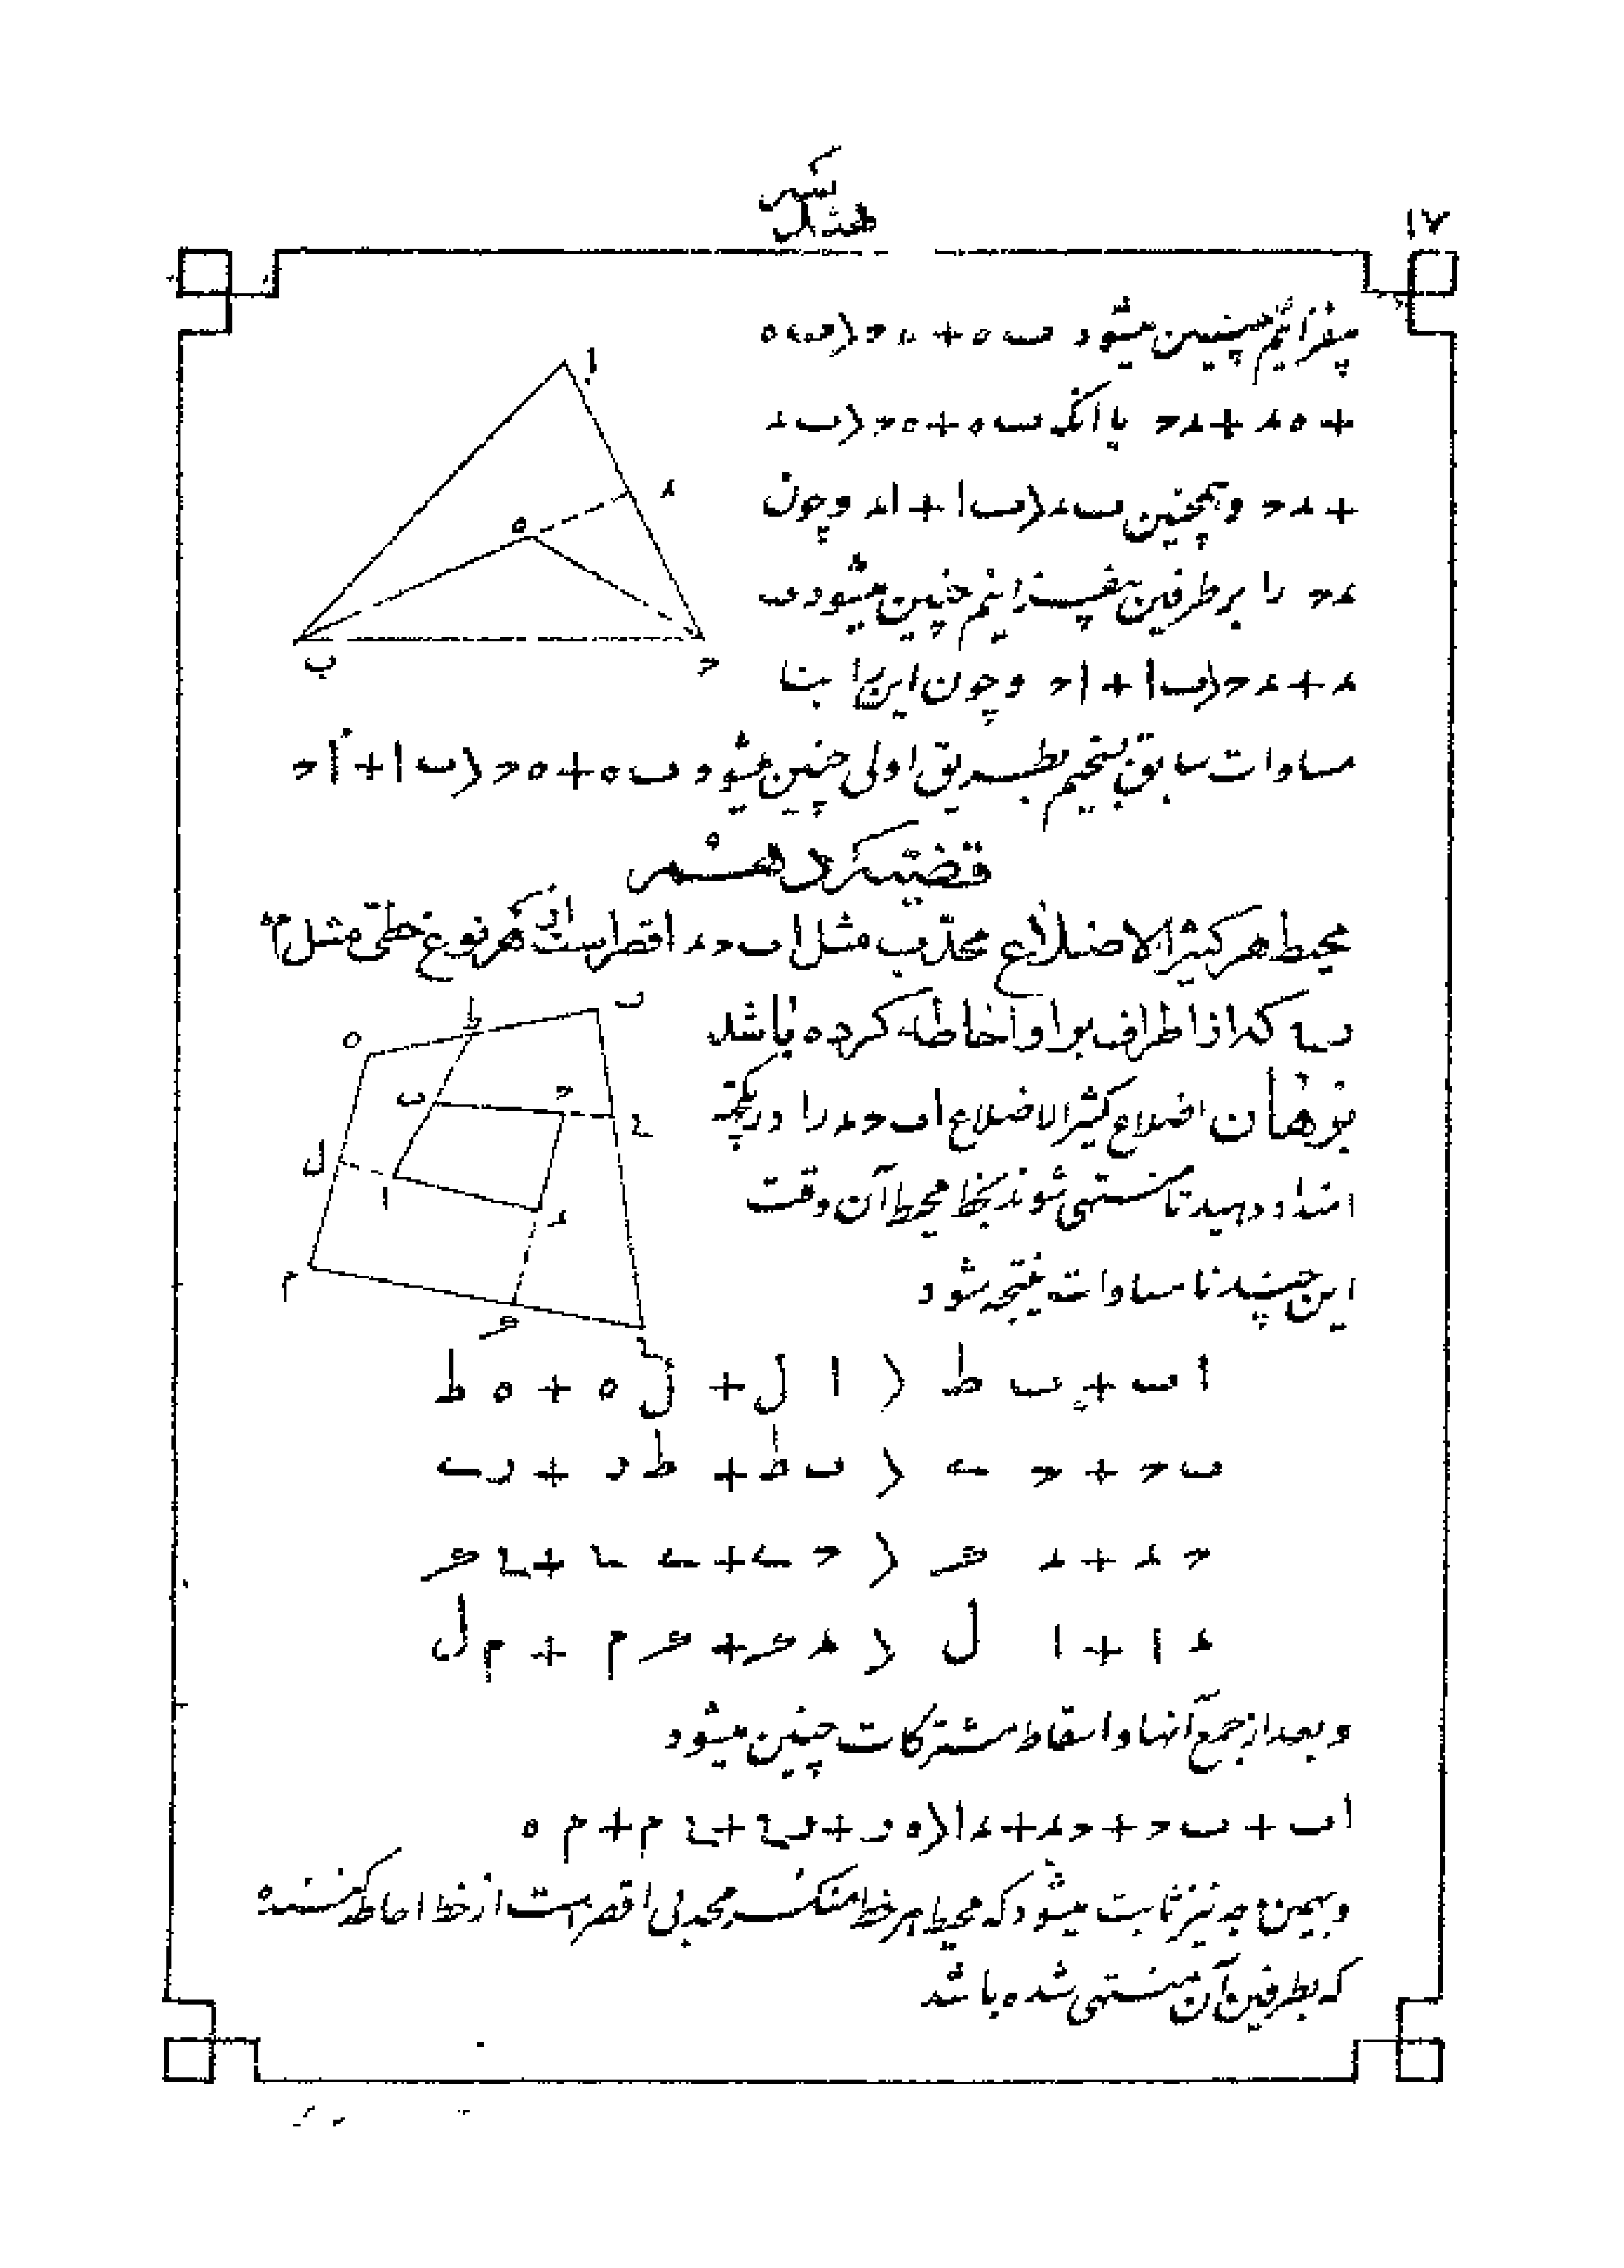 ۱۷
هندسه
بیفزائیم چنین میشود ب ه + ه د ⟨ ب ه
+ ه ء + ء د با آنکه ب ه + ه د ⟨ ب ء
+ ء د و همچنین ب ء ⟨ ب ا + ا ء و چون
ء د را بر طرفین بیفزائیم چنین میشود ب
ء + ء د ⟨ ب ا + ا د و چون این را با
مساوات سابق بسنجیم بطریق اولی چنین میشود ب ه + ه د ⟨ ب ا + ا د
ا
ء
ه
ب
د
محیط هر کثیر الاضلاع محدّب مثل ا ب د ء اقصر است از هر نوع خطّی مثل م ه
که از اطراف بر او احاطه کرده باشد
برهان اضلاع کثیر الاضلاع ا ب د ء را در یکجهة
امتداد دهید تا منتهی شوند بخط محیط آن وقت
این چند نا مساوات نتیجه شود
ه
ط
ر
ب
د
ل
ا
ء
م
ا ب + ب ط ⟨ ا ل + ل ه + ه ط
ب د + د ے ⟨ ب ط + ط ر + ر ے
ء ا + ا ل ⟨ ء ع + ع م + م ل
و بعد از جمع آنها و اسقاط مشترکات چنین میشود
و بهمین وجه نیز ثابت میشود که محیط هر خط منکسر محدبی اقصر است از خط احاطه کننده
که بطرفین آن منتهی شده باشد